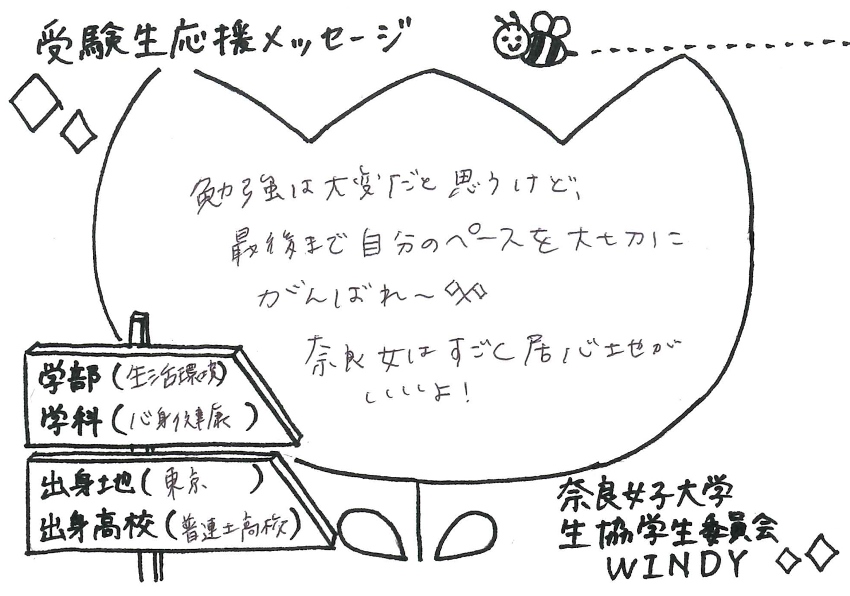 受験生応援メッセージ
勉強は大変だと思うけど、
最後まで自分のペースを大切に
がんばれ〜
奈良女はすごく居心地が
いいよ!
学部(生活環境)
学科(心身健康)
出身地(東京)
出身高校(普連土高校)
奈良女子大学
生協学生委員会
WINDY